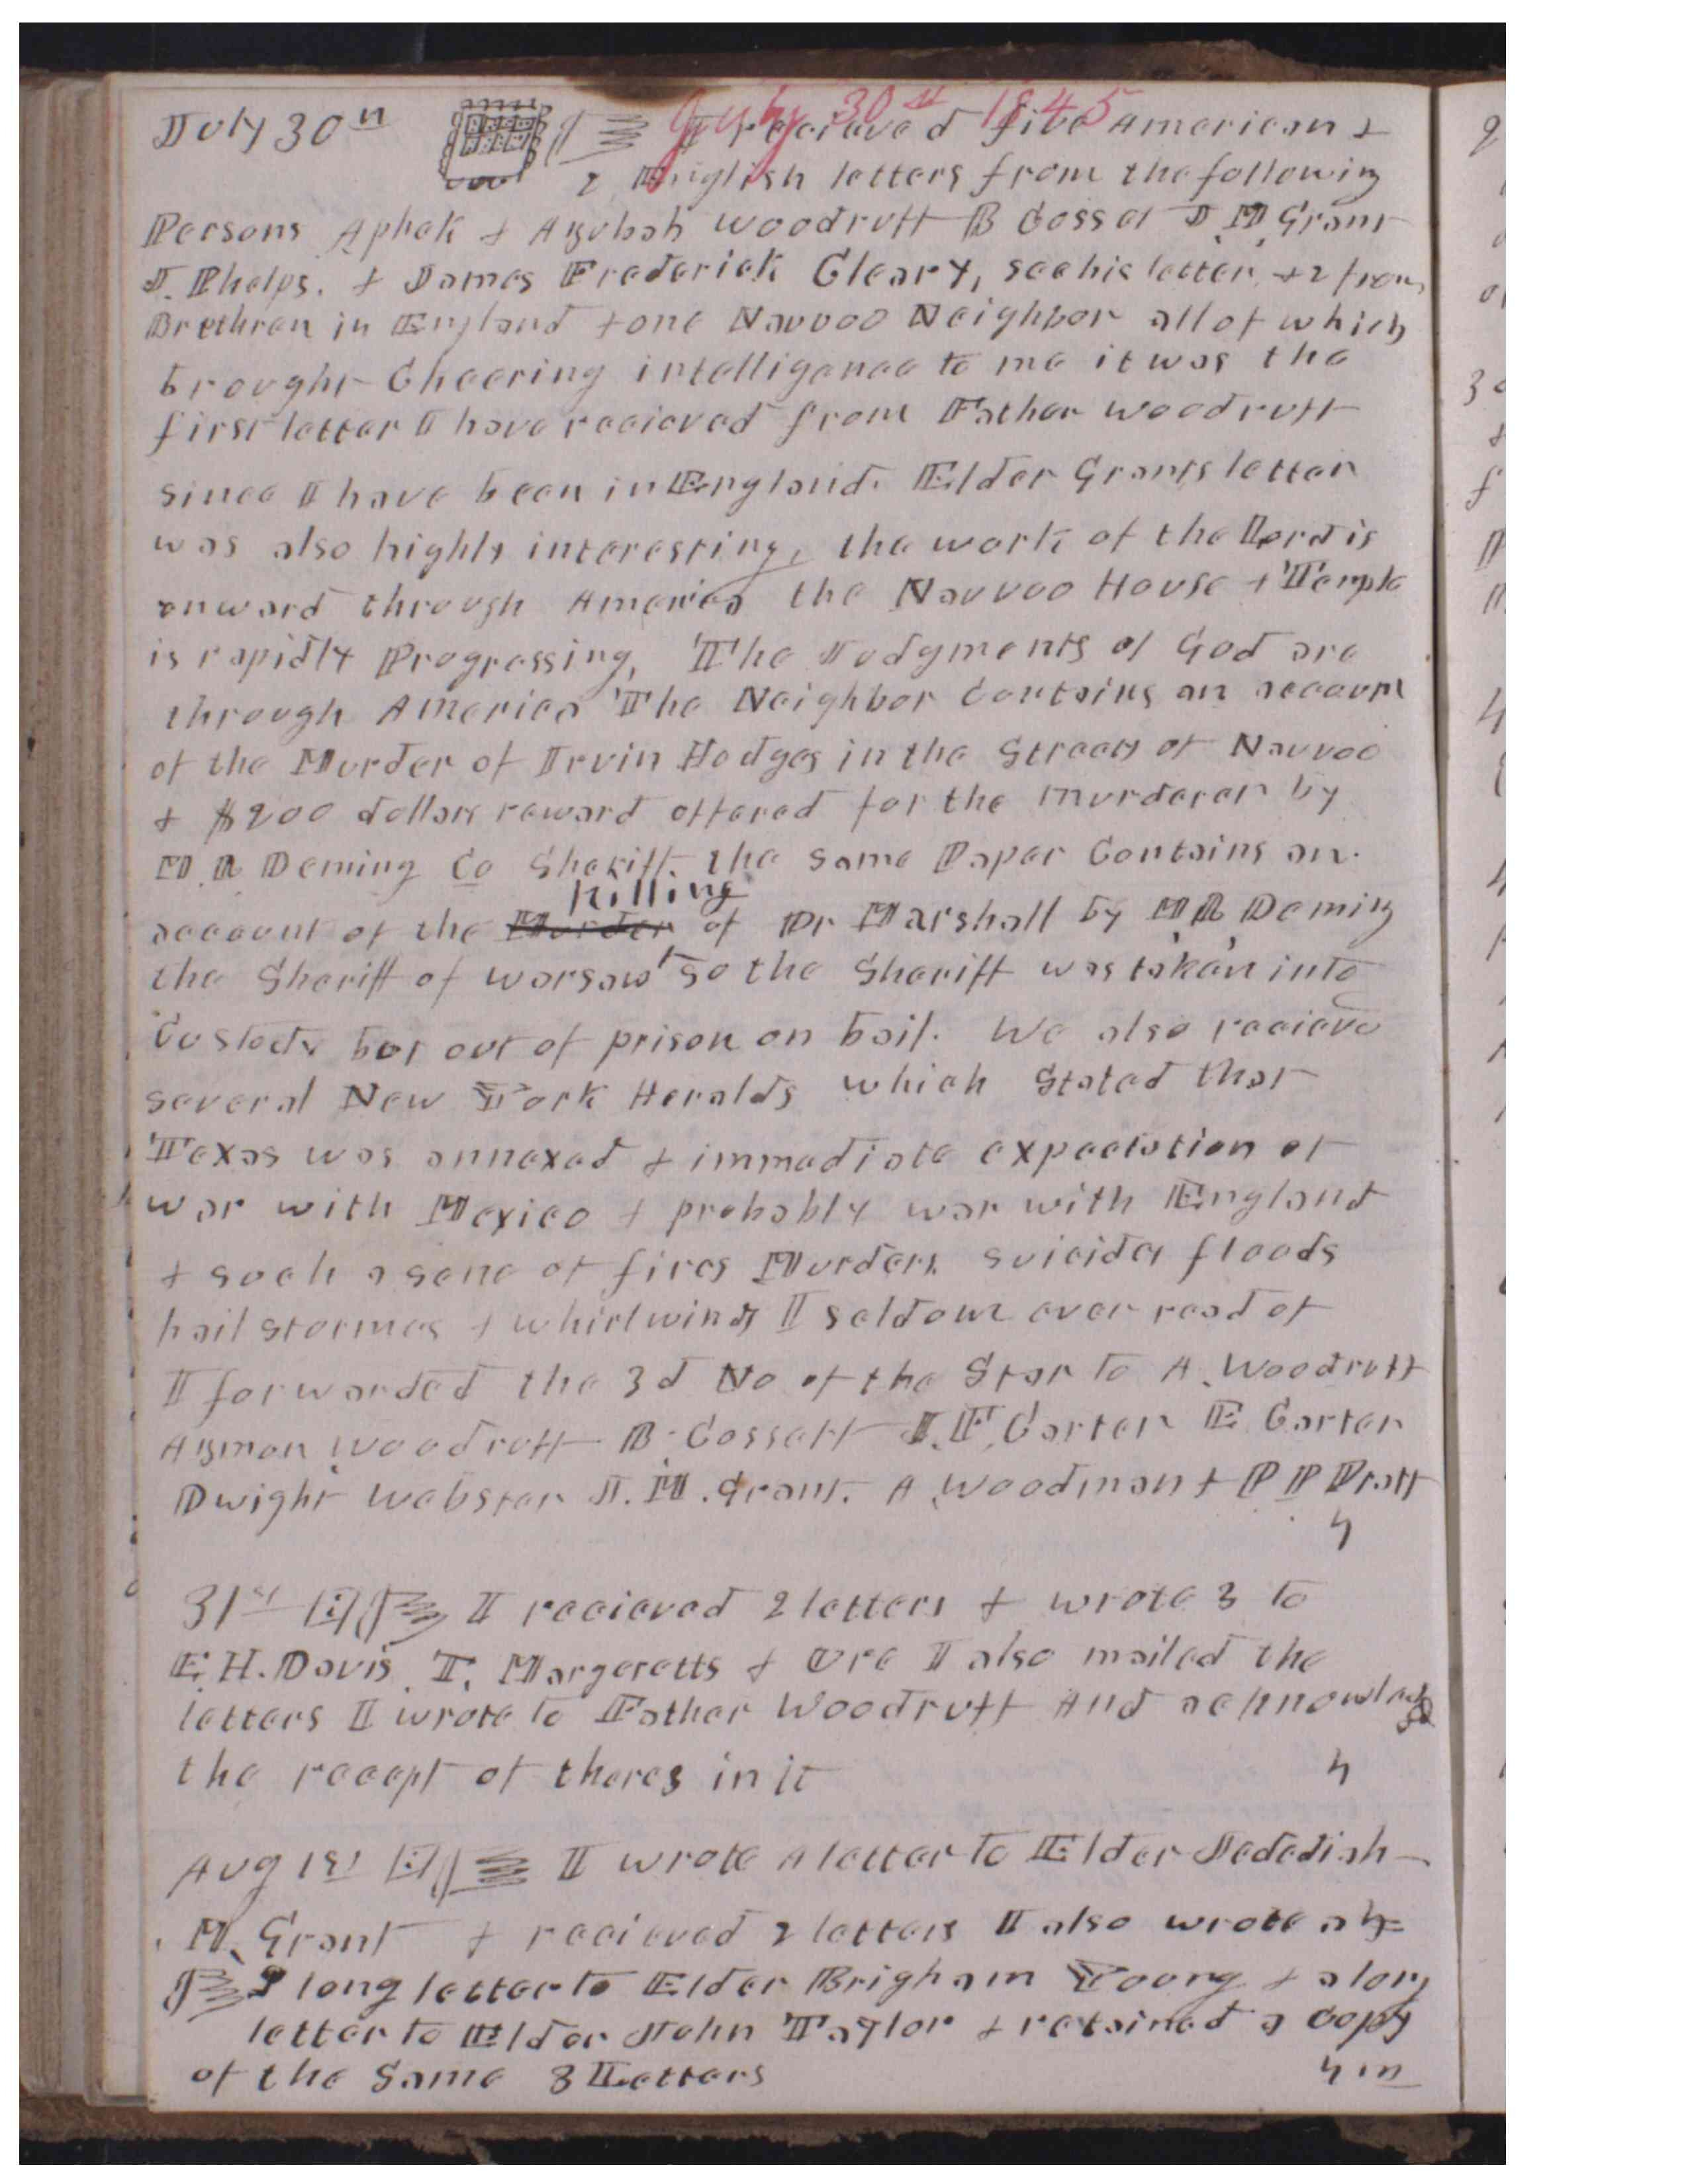 July 30th July 30th 1845 I recieved five American &
2 English letters from the following
Persons Aphek & Azubah Woodruff B Cosset J. M. Grant
J. Phelps. & James Frederick Cleary, see his letter, & 2 from
Brethren in England & one Nauvoo Neighbor all of which
brought Cheering intelligence to me it was the
first letter I have recieved from Father Woodruff
since I have been in England. Elder Grants letter
was also highly interesting, the work of the Lord is
onward through America the Nauvoo House & Temple
is rapidly Progressing, The Judgments of God are
through America The Neighbor Contains an account
of the Murder of Irvin Hodges in the Streets of Nauvoo
& $200 dollars reward offered for the murderer by
M. R Deming Co Sheriff. the same Paper Contains an
Killing
account of the Murder of Dr Marshall by M, R, Deming
the Sheriff of Warsaw so the Sheriff was taken into
Custody but out of prison on bail. We also recieve
several New York Heralds which Stated that
Texas was annexed & immediate expectation of
war with Mexico & probably war with England
& such a sene of fires Murders suicides floods
hail stormes & whirlwinds I seldom ever read of
I forwarded the 3d No of the Star to A. Woodruff
Azmon Woodruff B. Cossett I. F. Carter E Carter
Dwight Webster J. M. Grant. A Woodman & P P Pratt
4
31st I recieved 2 letters & wrote 3 to
E. H. Davis, T. Margeretts & Ure I also mailed the
letters I wrote to Father Woodruff And acknowledg
the recept of theres in it 4
Aug 1st I wrote A letter to Elder Jedediah
M. Grant & recieved 2 letters I also wrote a
long letter to Elder Brigham Young & a long
letter to Elder John Taylor & retained a copy
of the Same 3 Letters 4 m